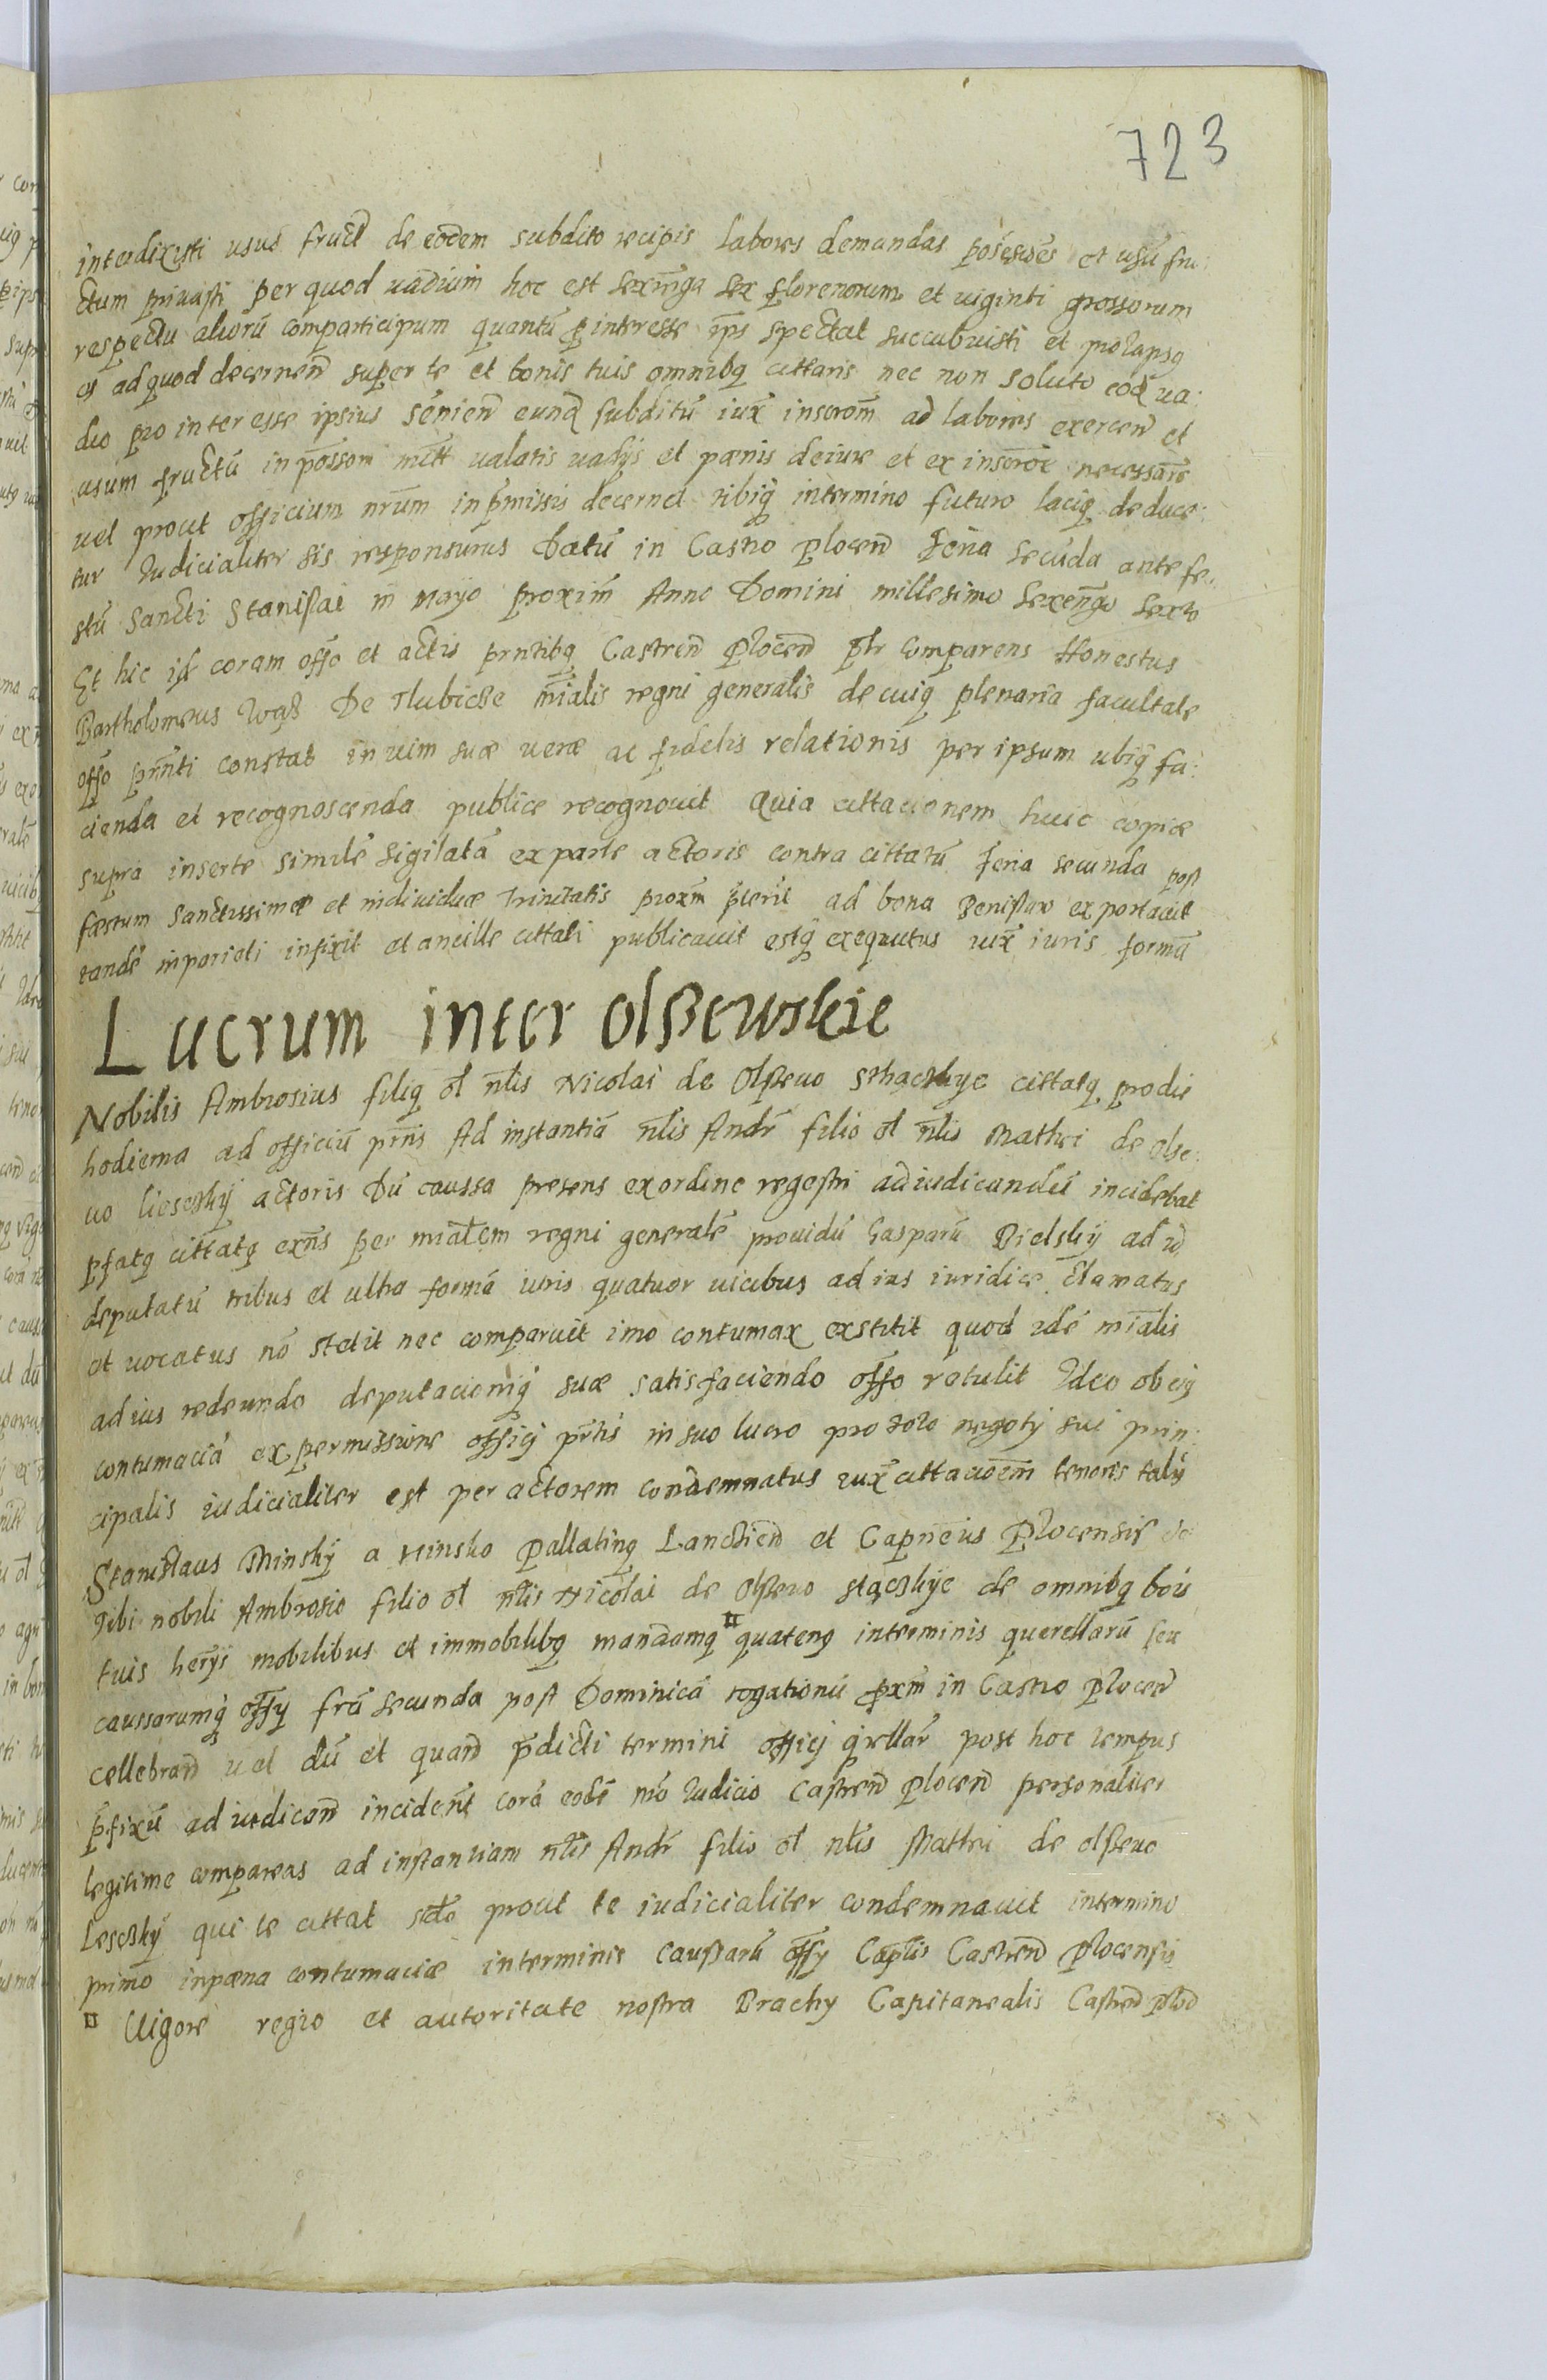 723
interdixisti usus fruct de eodem subdito recipis labores demandas et usu fru:
ctum privasti per quod vadium hoc est sexinga sex florenorum et viginti grossorum
respectu aliorū comparticipum quantū interesse ips spectat succubuisti et prolapsq
es ad quod decernen super te et bonis tuis omnibq cittaris nec non soluto eod va:
dio pro interesse ipsius eund subditū iux inscrom ad labores exercen et
usum fructū in possom mitt valatis vadÿs et pænis de iure et ex inscroe necessare
vel prout officium nrum in pmissis decernet tibiq in termino futuro laciq deduce:
tur Iudicialiter sis responsurus Datū in Castro plocen feria secūda ante fe:
stū Sancti Stanislai in Mayo proxim Anno Domini millesimo sexengo sexto
Et hic id coram offo et actis prntibq Castren plocen ptr comparens Honestus
Bartholomeus Wąss De Tlubicze mialis regni generalis de cuiq plenaria facultate
offo prnti constat in vim suæ veræ ac fidelis relationis per ipsum ubiq fa:
cienda et recognoscenda publice recognovit Quia cittacionem huic copiæ
supra inserte similē sigilatā ex parte actoris contra cittatū feria secunda post
fæstum Sanctissimæ et individuæ Trinitatis proxm pterit ad bona exportavit
tandē in parieti infixit et ancille cittati publicavit estq exequutus iux iuris formā
Lucrum inter olßewskie
Nobilis Ambrosius filiq ol nlis Nicolai de Olssewo Sthączkÿe cittatq pro die
hodierna ad officiū prnis Ad instantiā nlis Andr filio ol nlis Mathei de olse:
vo lieseskÿ actoris Dū caussa presens ex ordine regestri adiudicandū incidebat
pfatq cittatq exns per mialem regni generalē providū Gasparū Bielskÿ ad id
deputatū tribus et ultra formā iuris quatuor vicibus ad ius iuridice clamatus
et vocatus nō stetit nec comparuit imo contumax exstitit quod idē mialis
ad ius redeundo deputacioniq suæ satisfaciendo offo retulit Ideo ob eiq
contumaciā ex permissione officij prntis in suo lucro pro toto negotÿ sui prin:
cipalis iudicialiter est per actorem condemnatus iux cittacioem tenoris talis
Stanislaus Minskÿ a Minsko pallatinq Lancicien et Capneus Plocensis
Tibi nobili Ambrosio filio ol nlis Nicolai de Olssewo stączkÿe de omnibq bois
tuis herÿs mobilibus et immobilibq mandamq ¤ quatenq in terminis querellarū seu
caussarumq offÿ fria secunda post Dominicā rogationū pxm in Castro plocen
cellebran vel dū et quand pdicti termini officij qrellar post hoc tempus
pfixū adiudican incident corā eodē nro Iudicio Castren plocen personaliter
legitime compareas ad instantiam nlis Andr filio ol nlis Mathei de olssewo
Lesczkÿ qui te cittat prout te iudicialiter condemnavit in termino
primo in pæna contumaciæ in terminis caussarū offÿ Caplis Castren plocensis
¤ Vigore regio et autoritate nostra Brachÿ Capitanealis Castren ploc